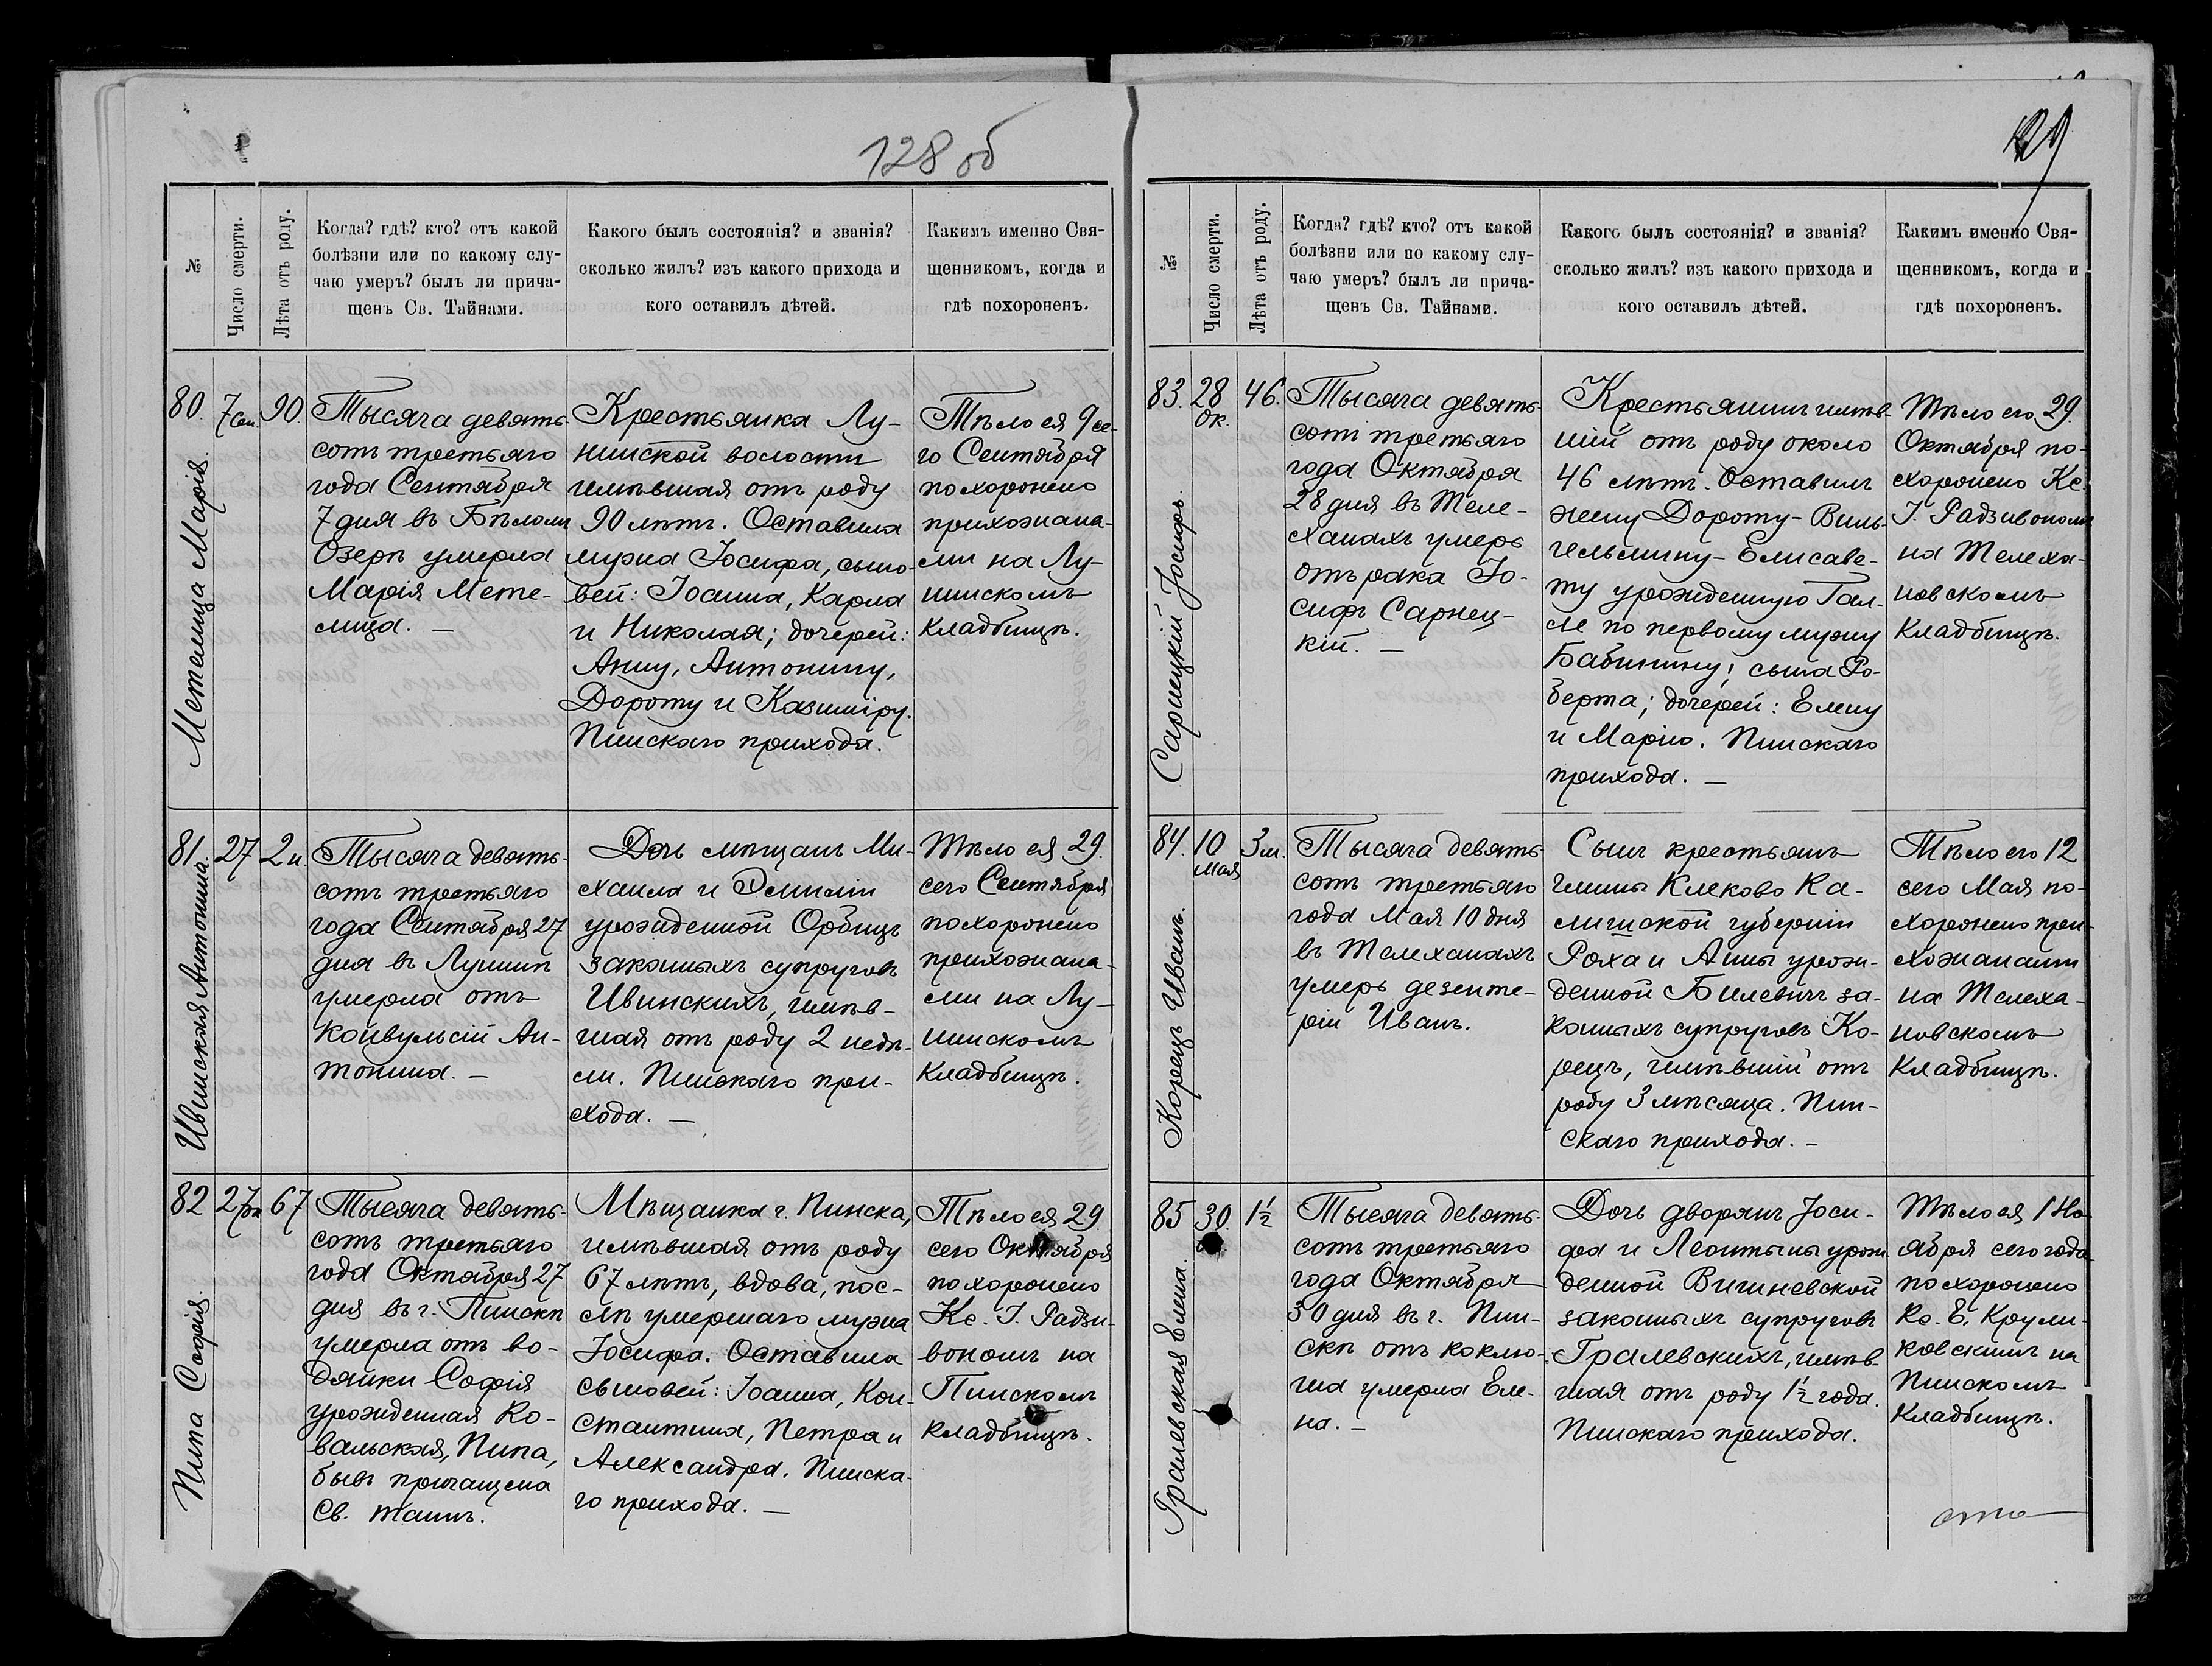 128 об
№
Число смерти.
Лѣта отъ роду.
Когда? гдѣ? кто? отъ какой
болѣзни или по какому слу-
чаю умеръ? былъ ли прича-
щенъ Св. Тайнами.
Какого былъ состоянія? и званія?
сколько жилъ? изъ какого прихода и
кого оставилъ дѣтей.
Какимъ именно Свя-
щенникомъ, когда и
гдѣ похороненъ.
80.
Метелица Марія.
7 сен.
90.
Тысяча девять-
сотъ третьяго
года Сентября
7 дня въ Бѣломъ
Озерѣ умерла
Марія Мете-
лица. —
Крестьянка Лу-
нинской волости
имѣвшая отъ роду
90 лѣтъ. Оставила
мужа Іосифа, сыно-
вей: Іоанна, Карла
и Николая; дочерей:
Анну, Антонину,
Дороту и Казиміру.
Пинскаго прихода.
Тѣло ея 9 се-
го Сентября
похоронено
прихожана-
ми на Лу-
нинскомъ
кладбищѣ.
81.
Ивинская Антонина.
27
2 н.
Тысяча девять-
сотъ третьяго
года Сентября 27
дня въ Лунинѣ
умерла отъ
конвульсій Ан-
тонина. —
Дочь мѣщанъ Ми-
хаила и Эмиліи
урожденной Орбицъ
законныхъ супруговъ
Ивинскихъ, имѣв-
шая отъ роду 2 недѣ-
ли. Пинскаго при-
хода. —
Тѣло ея 29
сего Сентября
похоронено
прихожана-
ми на Лу-
нинскомъ
кладбищѣ.
82
Пипа Софія.
27 ок
67
Тысяча девять-
сотъ третьяго
года Октября 27
дня въ г. Пинскѣ
умерла отъ во-
дянки Софія
урожденная Ко-
вальская, Пипа,
бывъ причащена
Св. Таинъ.
Мѣщанка г. Пинска,
имѣвшая отъ роду
67 лѣтъ, вдова, пос-
лѣ умершаго мужа
Іосифа. Оставила
сыновей: Іоанна, Кон-
стантина, Петра и
Александра. Пинска-
го прихода. —
Тѣло ея 29
сего Октября
похоронено
Кс. І. Радзи-
вономъ на
Пинскомъ
кладбищѣ.
129
№
Число смерти.
Лѣта отъ роду.
Когда? гдѣ? кто? отъ какой
болѣзни или по какому слу-
чаю умеръ? былъ ли прича-
щенъ Св. Тайнами.
Какого былъ состоянія? и званія?
сколько жилъ? изъ какого прихода и
кого оставилъ дѣтей.
Какимъ именно Свя-
щенникомъ, когда и
гдѣ похороненъ.
83.
Сарнецкій Іосифъ.
28
ок.
46.
Тысяча девять-
сотъ третьяго
года Октября
28 дня въ Теле-
ханахъ умеръ
отъ рака Іо-
сифъ Сарнец-
кій. —
Крестьянинъ имѣв-
шій отъ роду около
46 лѣтъ. Оставилъ
жену Дороту-Виль-
гельмину-Елисаве-
ту урожденную Гал-
ле по первому мужу
Бабинину; сына Ро-
берта; дочерей: Елену
и Марію. Пинскаго
прихода. —
Тѣло его 29
Октября по-
хоронено Кс.
І. Радзивономъ
на Телеха-
новскомъ
кладбищѣ.
84.
Корецъ Иванъ.
10
мая
3 м.
Тысяча девять-
сотъ третьяго
года Мая 10 дня
въ Телеханахъ
умеръ дезенте-
ріи Иванъ.
Сынъ крестьянъ
гмины Клеково Ка-
лишской губерніи
Роха и Анны урож-
денной Билевичъ за-
конныхъ супруговъ Ко-
рецъ, имѣвшій отъ
роду 3 мѣсяца. Пин-
скаго прихода. —
Тѣло его 12
сего Мая по-
хоронено при-
хожанами
на Телеха-
новскомъ
кладбищѣ.
85
Гралевская Елена.
30.
1½
Тысяча девять-
сотъ третьяго
года Октября
30 дня въ г. Пин-
скѣ отъ коклю-
ша умерла Еле-
на. —
Дочь дворянъ Іоси-
фа и Леонтины урож-
денной Вишневской
законныхъ супруговъ
Гралевскихъ, имѣв-
шая отъ роду 1½ года.
Пинскаго прихода.
Тѣло ея 1 Но-
ября сего года
похоронено
Кс. Е. Крули-
ковскимъ на
Пинскомъ
кладбищѣ.